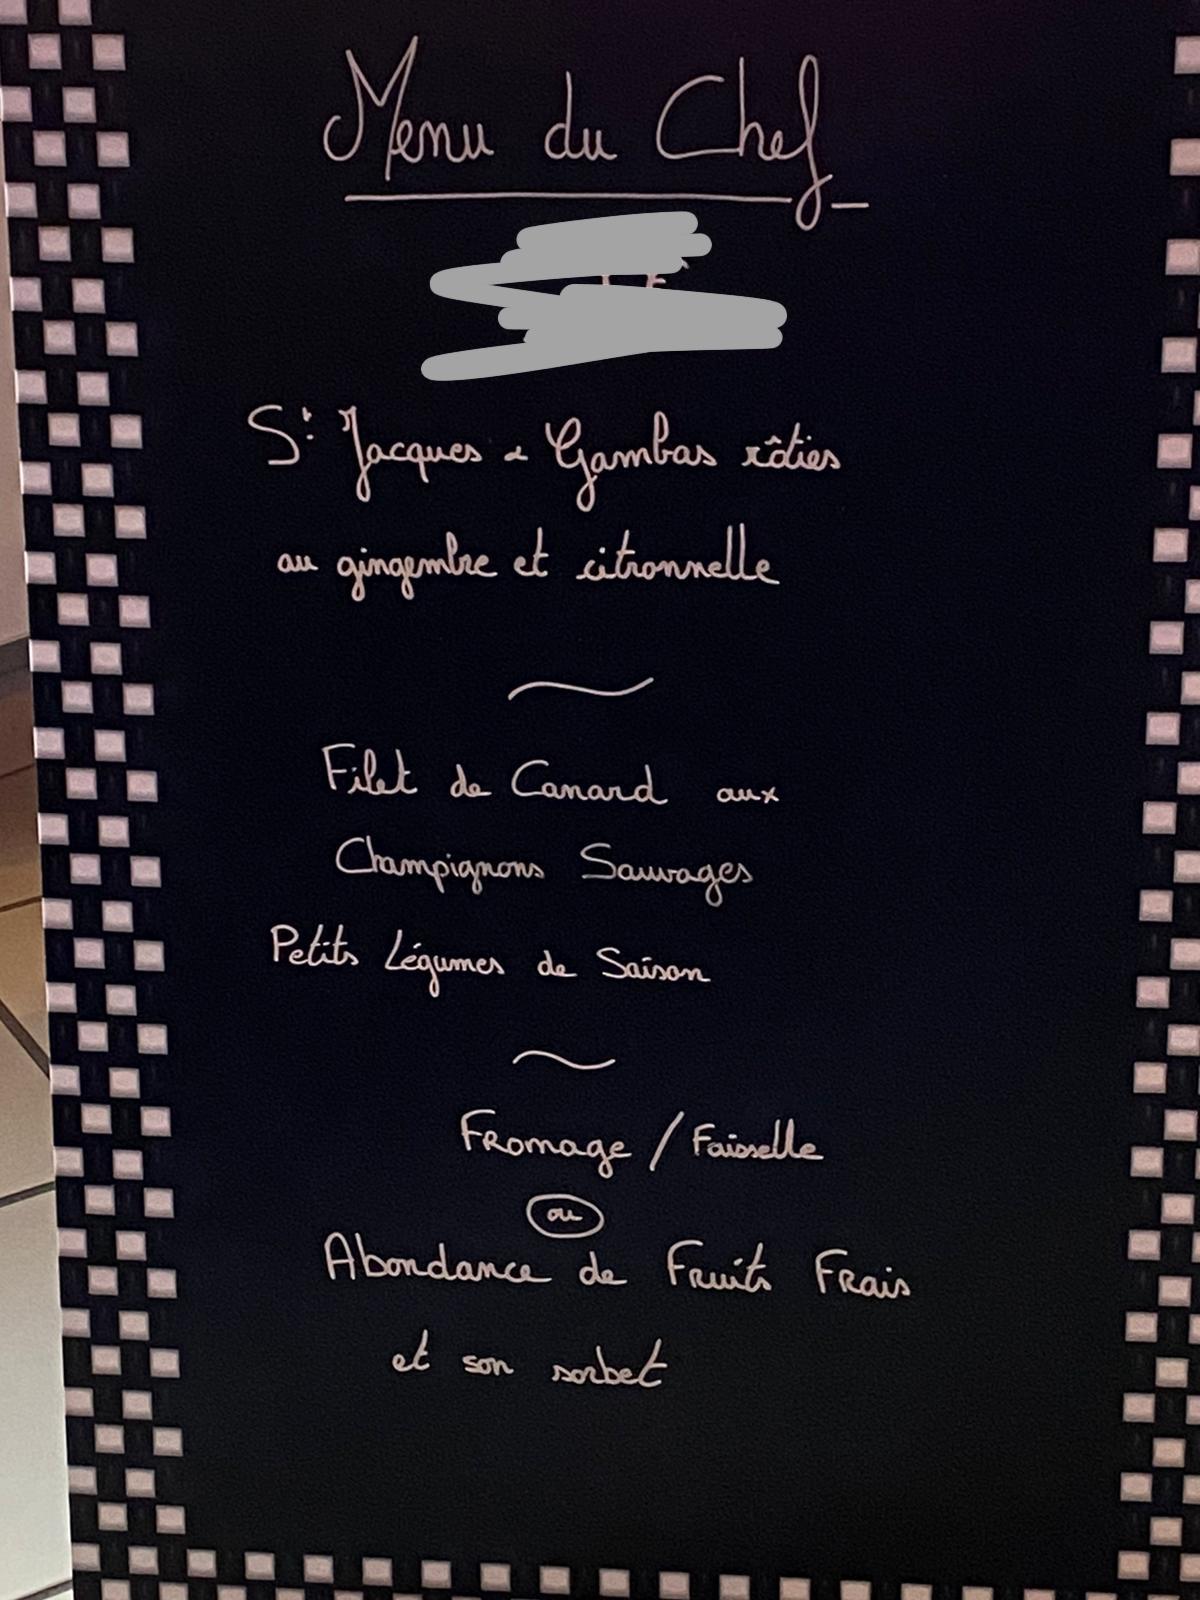 Menu du Chef
St Jacques & Gambas rôties
au gingembre et citronnelle
Filet de Canard aux
Champignons Sauvages
Petits Légumes de Saison
Fromage / Faisselle
ou
Abondance de Fruits Frais
et son sorbet